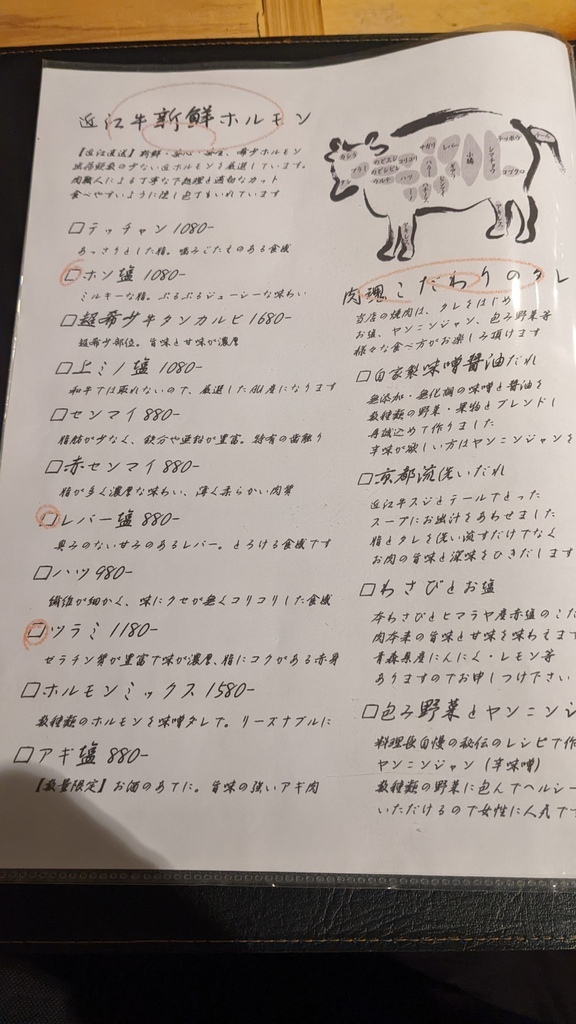 近江牛新鮮ホルモン
【近江直送】新鮮・安心・安全、希少ホルモン
出荷頭数の少ない近江ホルモンを厳選しています。
肉職人による丁寧な下処理と適切なカット
食べやすいように隠し包丁もいれています
□テッチャン 1080-
あっさりとした脂。噛みごたえのある食感
□ホン塩 1080-
ミルキーな脂。ぷるぷるジューシーな味わい
□超希少牛タンカルビ 1680-
超希少部位。旨味と甘味が濃厚
□上ミノ塩 1080-
和牛では取れないので、厳選した他産になります
□センマイ 880-
脂肪が少なく、鉄分や亜鉛が豊富。特有の歯触り
□赤センマイ 880-
脂が多く濃厚な味わい、薄く柔らかい肉質
□レバー塩 880-
臭みのない甘みのあるレバー。とろける食感です
□ハツ 980-
繊維が細かく、味にクセが無くコリコリした食感
□ツラミ 1180-
ゼラチン質が豊富で味が濃厚、脂にコクがある赤身
□ホルモンミックス 1580-
数種類のホルモンを味噌タレで。リーズナブルに
□アギ塩 880-
【数量限定】お酒のあてに。旨味の強いアギ肉
カシラ
ツラミ
タン
ネクタイ
コリコリ
ウルテ
サガリ
ハラミ
ハツ
レバー
ギアラ
小腸
シマチョウ
テッポウ
テール
コブクロ
肉魂こだわりのタレ
当店の焼肉は、タレをはじめ
お塩、ヤンニンジャン、包み野菜等
様々な食べ方がお楽しみ頂けます
□自家製味噌醤油だれ
無添加・無化調の味噌と醤油を
数種類の野菜・果物とブレンドし
丹誠込めて作りました
辛味が欲しい方はヤンニンジャンを
□京都流洗いだれ
近江牛スジとテールでとった
スープにお出汁をあわせました
脂とタレを洗い流すだけでなく
お肉の旨味と深味をひきだします
□わさびとお塩
本わさびとヒマラヤ産赤塩のこだ
肉本来の旨味と甘味を味わえます
青森県産にんにく・レモン等
ありますのでお申しつけ下さい
□包み野菜とヤンニンジ
料理長自慢の秘伝のレシピで作
ヤンニンジャン（辛味噌）
数種類の野菜に包んでヘルシー
いただけるので女性に人気です